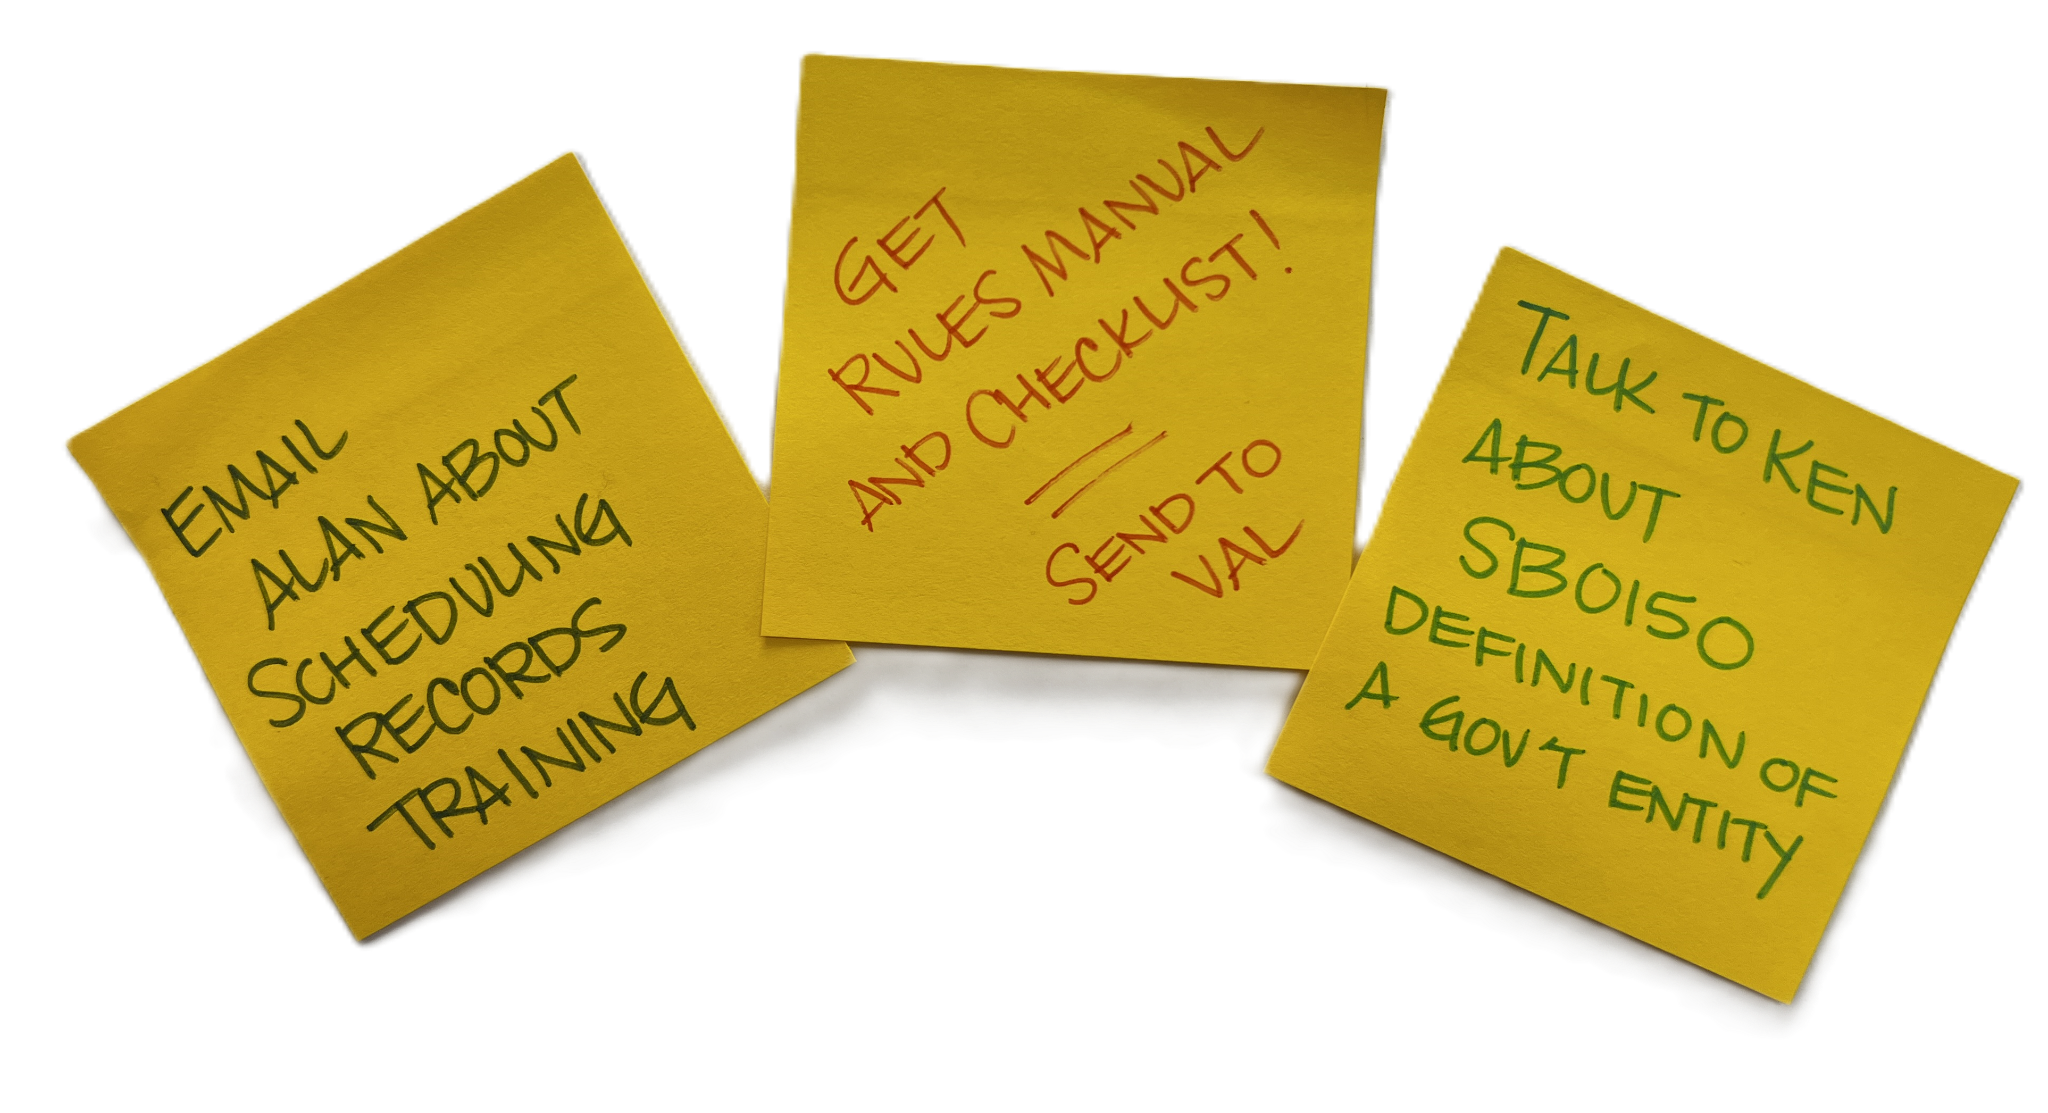 EMAIL
ALAN ABOUT
SCHEDULING
RECORDS
TRAINING
GET
RULES MANUAL
AND CHECKLIST!
SEND TO
VAL
TALK TO KEN
ABOUT
SB0150
DEFINITION OF
A GOV'T ENTITY